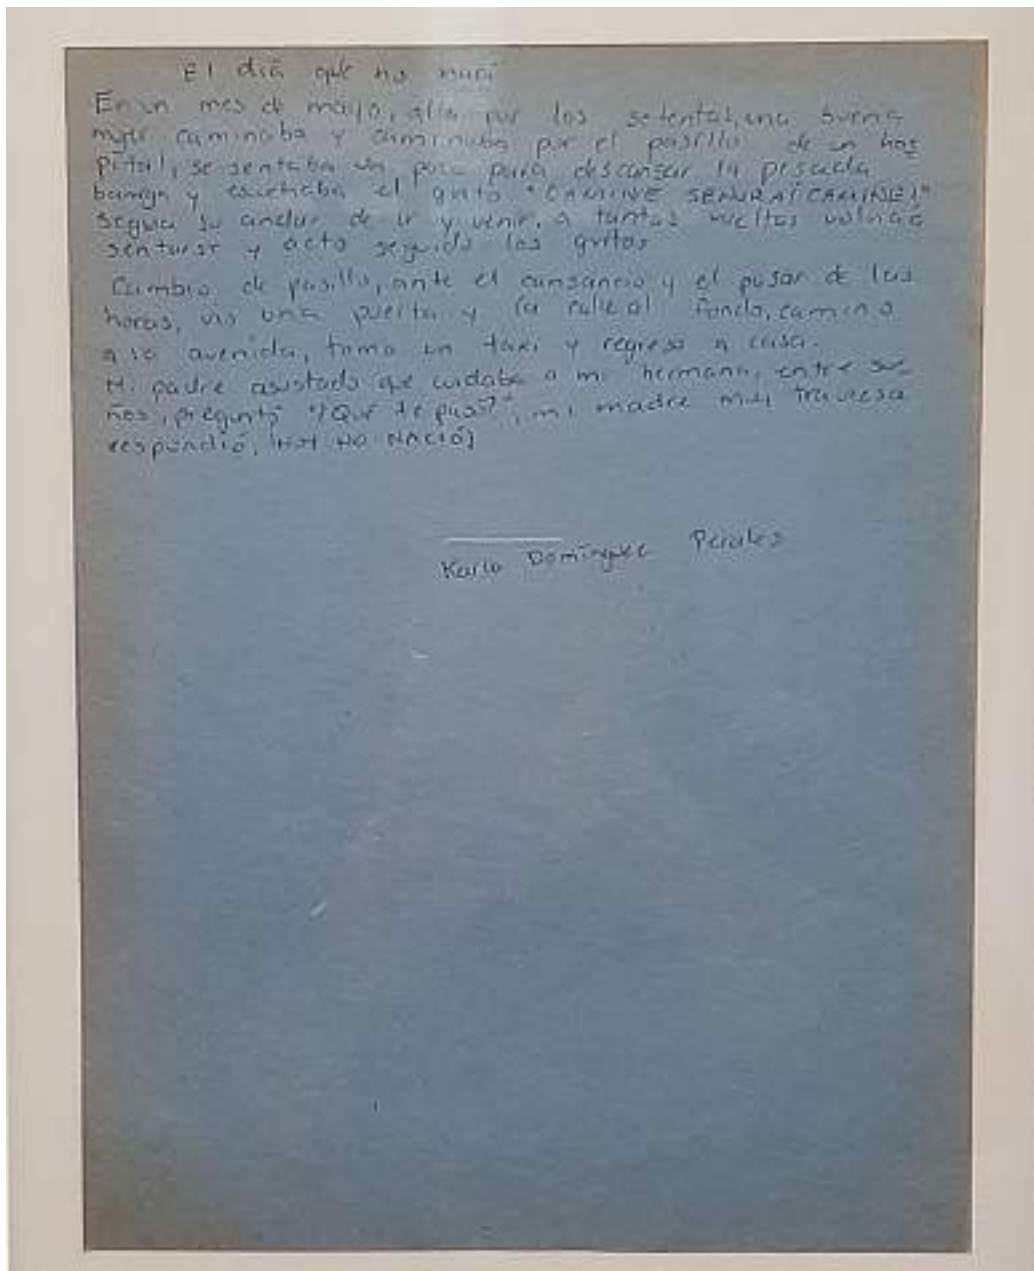 El día que no nací
En un mes de mayo, alla por los setentas, una buena
mujer caminaba y caminaba por el pasillo de un hos
pital, se sentaba un poco para descansar la pesada
barriga y escuchaba el grito "CAMINE SEÑORA! CAMINE!"
Seguia su andar de ir y venir, a tantas vueltas volvia a
sentarse y acto seguido los gritos
Cambio de pasillo, ante el cansancio y el pasar de las
horas, vio una puerta y la calle al fondo, camino
a la avenida, tomo un taxi y regreso a casa.
Mi padre asustado que cuidaba a mi hermana, entre sue
ños, preguntó "¿Que te pasó?", mi madre muy traviesa
respondió, HOY NO NACIÓ!
Karla Domínguez Perales